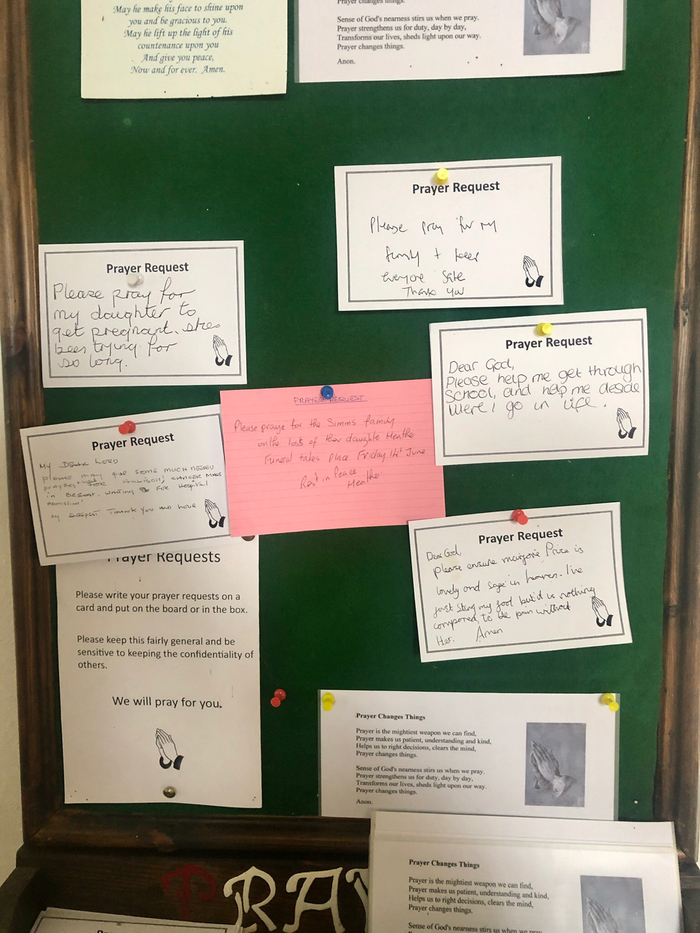 May he make his face to shine upon
you and be gracious to you.
May he lift up the light of his
countenance upon you
And give you peace,
Now and for ever. Amen.
Prayer changes things.
Sense of God's nearness stirs us when we pray.
Prayer strengthens us for duty, day by day,
Transforms our lives, sheds light upon our way.
Prayer changes things.
Anon.
Prayer Request
Please pray for my
family + keep
everyone safe
Thank you
Prayer Request
Please pray for
my daughter to
get pregnant. shes
been trying for
so long.
Prayer Request
Dear God,
Please help me get through
School, and help me decide
were I go in life.
PRAYER REQUEST
Please praye for the Simms family
on the loss of their daughte
Funeral takes place Friday 1st June
Rest in Peace
Prayer Request
MY DEAR LORD
please may give some much needed
prayers
in BREAST. WAITING FOR HOSPITAL
Thank you
Prayer Request
Dear God,
please ensure Price is
lovely and safe in heaven. I've
just my foot but it is nothing
compared to the pain without
Her. Amen
Prayer Requests
Please write your prayer requests on a
card and put on the board or in the box.
Please keep this fairly general and be
sensitive to keeping the confidentiality of
others.
We will pray for you.
Prayer Changes Things
Prayer is the mightiest weapon we can find,
Prayer makes us patient, understanding and kind,
Helps us to right decisions, clears the mind,
Prayer changes things.
Sense of God's nearness stirs us when we pray.
Prayer strengthens us for duty, day by day,
Transforms our lives, sheds light upon our way.
Prayer changes things.
Anon.
Prayer Changes Things
Prayer is the mightiest weapon we can find,
Prayer makes us patient, understanding and kind,
Helps us to right decisions, clears the mind,
Prayer changes things.
Sense of God's nearness stirs us when we pray.
PRAY